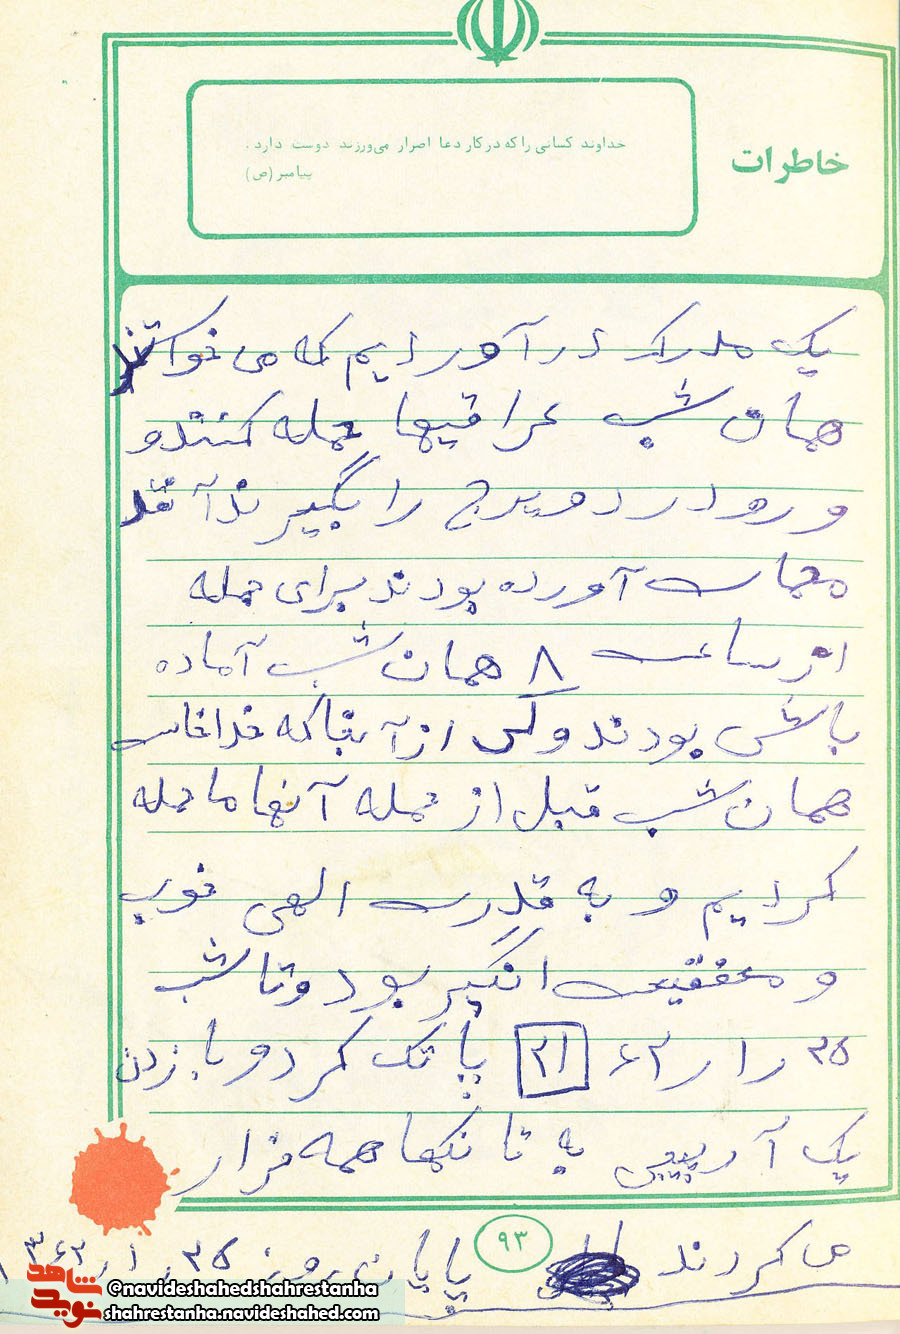 خاطرات
خداوند کسانی را که در کار دعا اصرار می‌ورزند دوست دارد.
پیامبر (ص)
یک مدرک درآوردیم که می خواستند
همان شب عراقیها حمله کنند و
و رود در دویرج را بگیرند آنقد
مهمات آورده بودند برای حمله
از ساعت ۸ همان شب آماده
باش بودند ولی از آنجا که خدا خاست
همان شب قبل از حمله آنها ما حمله
کردیم و به قدرت الهی خوب
و موفقیت انگیز بود و تا شب
۲۵ ر ۱ ر ۶۲ ۲۱ پاتک کرد و با زدن
یک آرپیجی به تانکها همه فرار
می کردند پایان روز ۲۵ ر ۱ ر ۱۳۶۲
۹۳
شاهد نوید
@navideshahedshahrestanha
shahrestanha.navideshahed.com